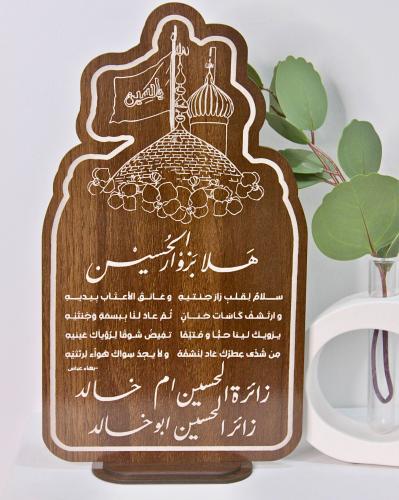 يا حسين
هَلا بزوّار الحُسين
سلامٌ لقلبٍ زار جنتيهِ وعانق الأعتاب بيديهِ
وارتشف كاسات حنانٍ ثم عاد لنا ببسمة وجنتيهِ
يرويك لينا حبًا و قبلًا تفيض شوقًا لرؤياك عينيهِ
من شذى عطرك عاد لنشفهُ ولا يجد سواك هواءً لرئتيهِ
زائرة الحسين ام خالد
زائر الحسين ابو خالد